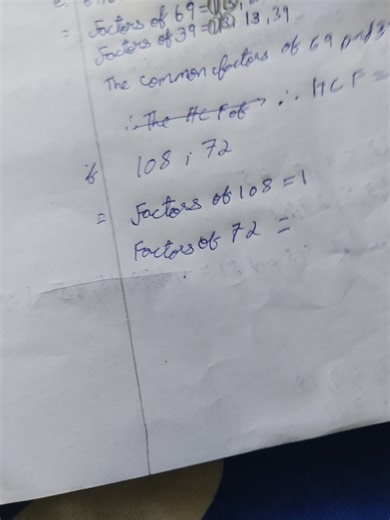 = Factors of 69 = 1, 3,
Factors of 39 = 1, 3, 13, 39
The common factors of 69 and 3
∴ The HCF of ∴ HCF =
108, 72
= Factors of 108 = 1
Factors of 72 =